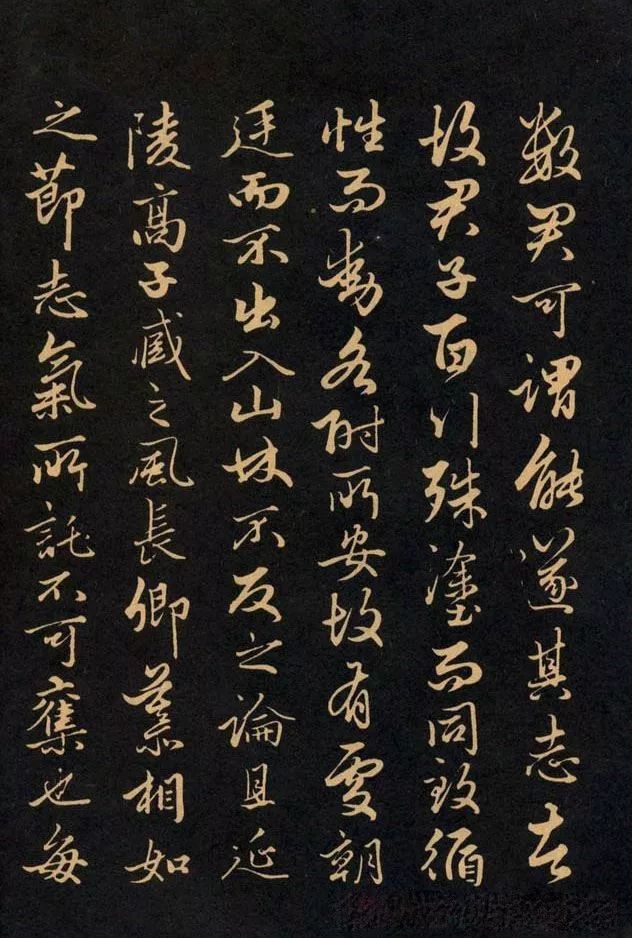 数君可謂能遂其志者
故君子百行殊塗而同致循
性而動各附所安故有處朝
廷而不出入山林不反之論且延
陵高子臧之風長卿慕相如
之節志氣所託不可奪也每